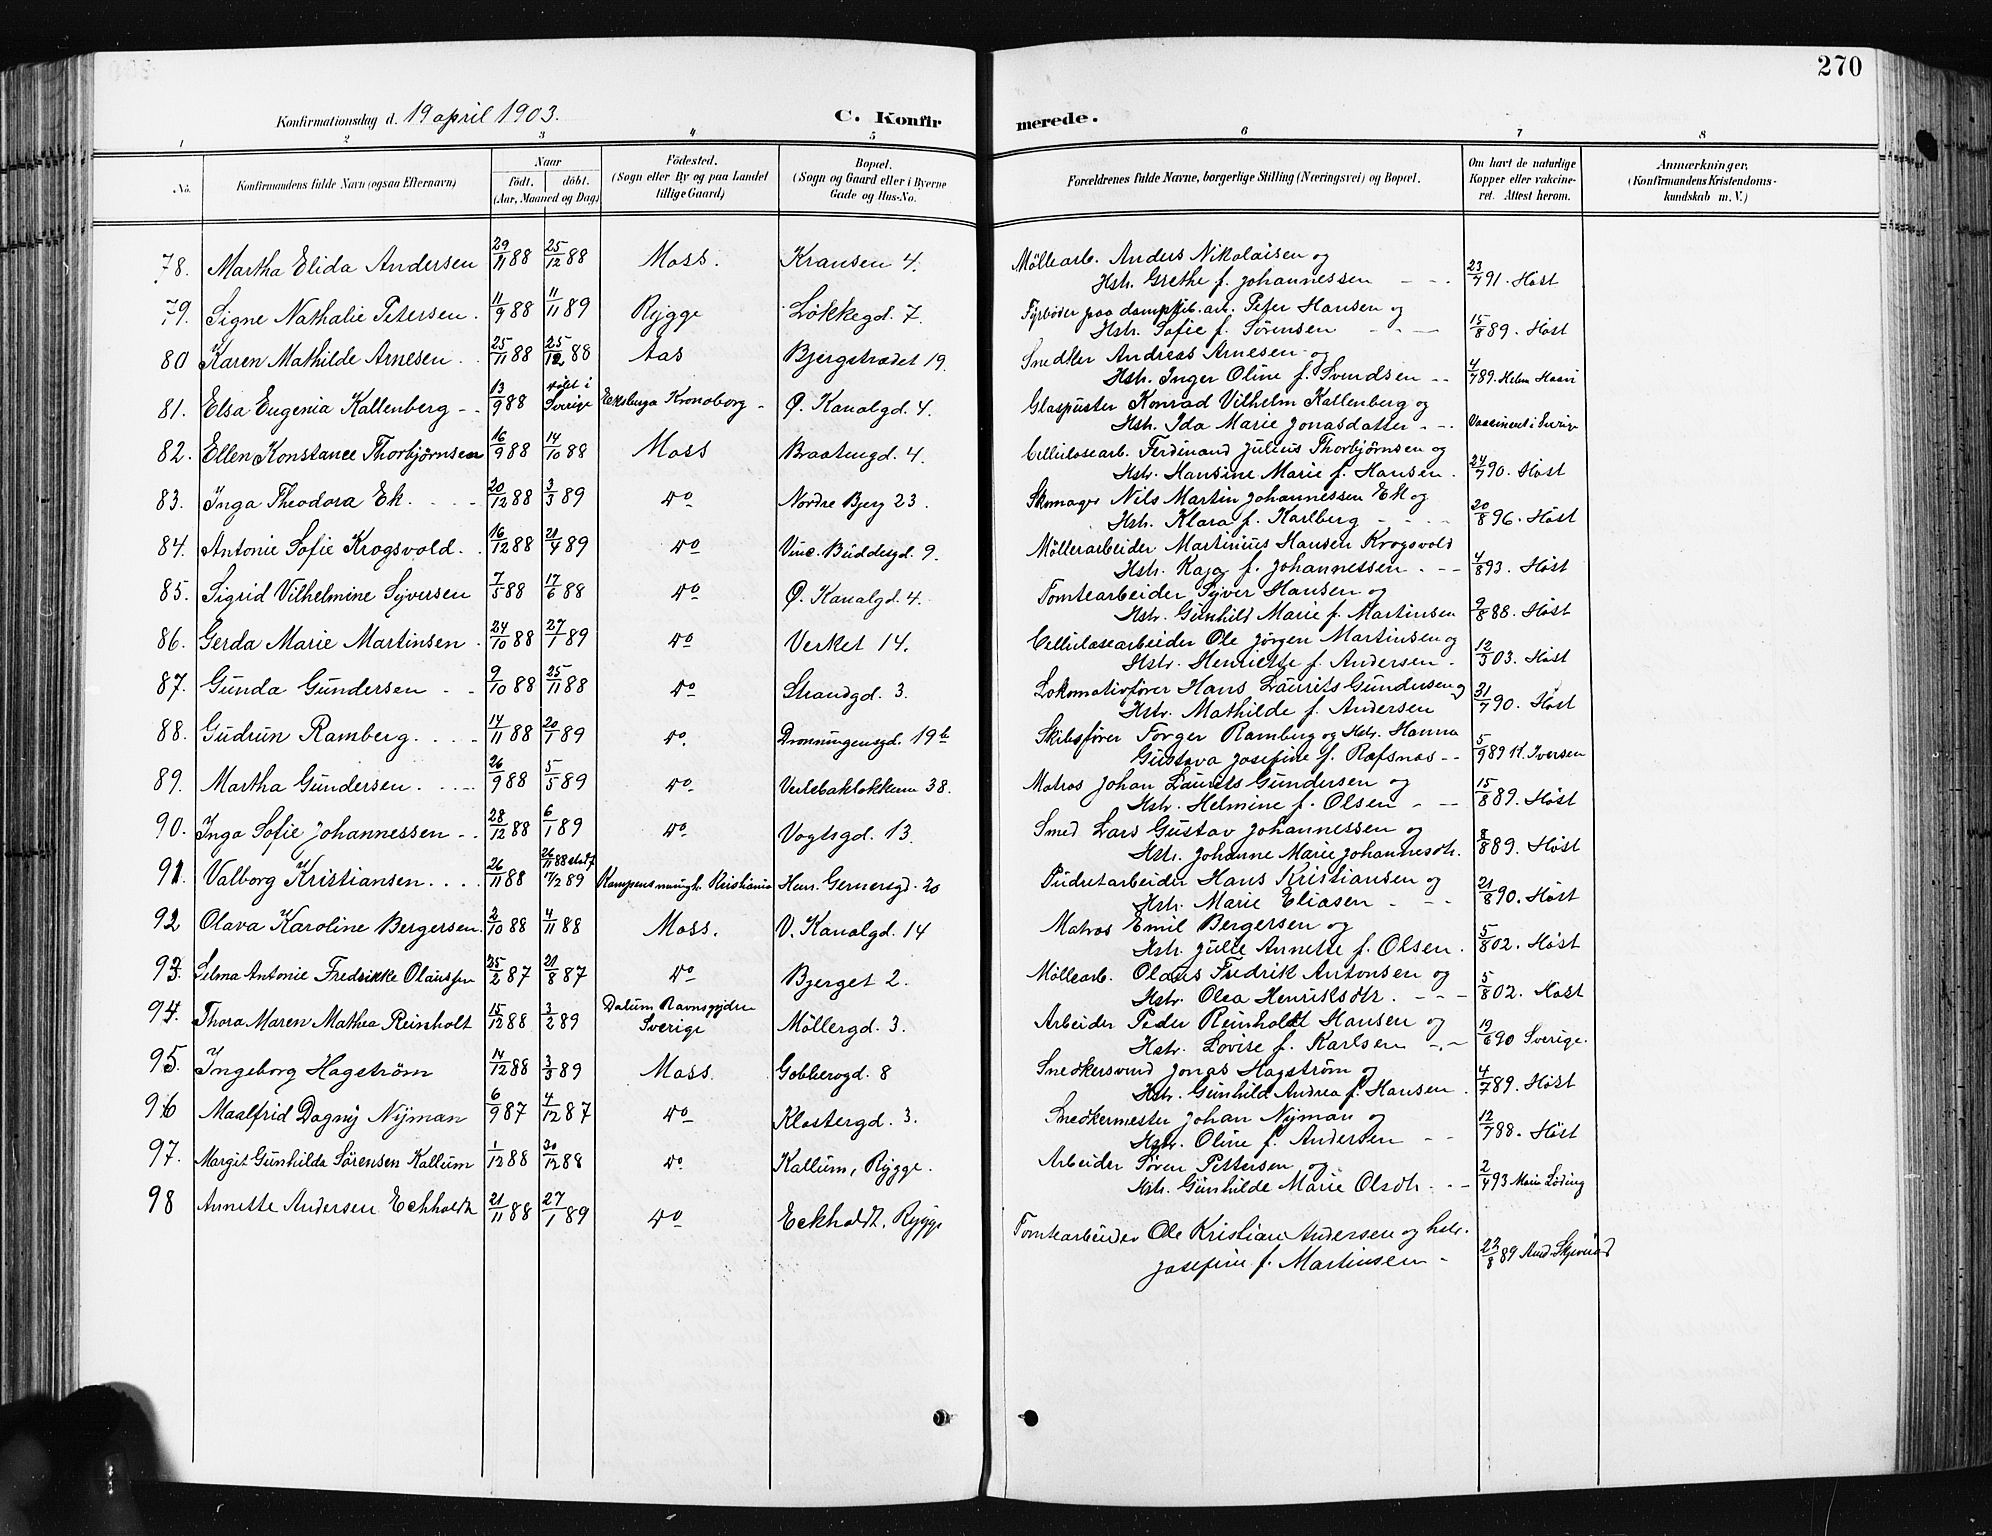 270
Konfirmationsdag d. 19 april 1903.
C. Konfirmerede.
1 2 3 4 5 6 7 8
No.
Konfirmandens fulde Navn (ogsaa Efternavn)
Naar
födt. döbt.
(Aar, Maaned og Dag)
Födested.
(Sogn eller By og paa Landet
tillige Gaard)
Bopæl.
(Sogn og Gaard eller i Byerne
Gade og Hus-No.
Forældrenes fulde Navne, borgerlige Stilling (Næringsvei) og Bopæl.
Om havt de naturlige
Kopper eller vakcine-
ret. Attest herom.
Anmærkninger,
(Konfirmandens Kristendoms-
kundskab m. V.)
78. Martha Elida Andersen 29/11 88 25/12 88 Moss. Kransen 4. Møllearb. Anders Nikolaisen og
Hstr. Grethe f. Johannessen 23/7 91. Høst
79. Signe Nathalie Petersen. 11/9 88 11/11 89 Rygge Løkkegd. 7. Fyrbøder paa dampsib. arb. Peter Hansen og
Hstr. Sofie f. Sørensen 15/8 89. Høst
80 Karen Mathilde Arnesen. 25/11 88 25/12 88 Aas Bjergstrædet 19. Snedker Andreas Arnesen og
Hstr. Inger Oline f. Svendsen 4/7 89. Helm
81. Elsa Eugenia Kallenberg 13/9 88 døbt i Sverige Kronoborg Ø. Kanalgd. 4. Glaspuster Konrad Vilhelm Kallenberg og
Hstr. Ida Marie Jonasdatter Vaccineret i Sverige
82. Ellen Konstance Thorbjørnsen 16/9 88 14/10 88 Moss Braatengd. 4. Cellulosearb. Ferdinand Julius Thorbjørnsen og
Hstr. Hansine Marie f. Hansen. 24/7 90. Høst
83. Inga Theodora Ek. 20/12 88 3/3 89 do Nordre Bjerg 23. Skomager Nils Martin Johannessen Ek og
Hstr. Klara f. Karlberg 20/8 96. Høst
84. Antonie Sofie Krogsvold. 16/12 88 21/4 89 do Vinc. Buddesgd. 9. Møllerarbeider Martinius Hansen Krogsvold
Hstr. Kaja f. Johannessen. 4/8 93. Høst
85. Sigrid Vilhelmine Syversen 7/5 88 17/6 88 do Ø. Kanalgd. 4. Tomtearbeider Syver Hansen og
Hstr. Gunhild Marie f. Martinsen 9/8 88. Høst
86. Gerda Marie Martinsen 24/10 88 27/1 89 do Verket 14. Cellulosearbeider Ole Jørgen Martinsen og
Hstr. Henriette f. Andersen. 12/3 03. Høst
87. Gunda Gundersen 9/10 88 25/11 88 do Strandgd. 3. Lokomotivfører Hans Laurits Gundersen og
Hstr. Mathilde f. Andersen 31/7 90. Høst
88. Gudrun Ramberg. 14/11 88 20/1 89 do. Dronningensgd. 19b Skibsfører Forger Ramberg og Hstr. Hanna
Gustava Josefine f. Refsnæs 5/9 89 H. Iversen
89. Martha Gundersen. 26/9 88 5/5 89 do Verlebakløkken 38. Matros Johan Laurits Gundersen og
Hstr. Helmine f. Olsen 15/8 89. Høst
90. Inga Sofie Johannessen 28/12 88 6/1 89 do Vogtsgd. 13. Smed Lars Gustav Johannessen og
Hstr. Johanne Marie Johannesdtr. 8/8 89. Høst
91. Valborg Kristiansen. 26/11 88 26/11 88 stadf. 17/2 89 Kristiania Hen. Gernersgd. 20 Pudretarbeider Hans Kristiansen og
Hstr. Marie Eliasen 21/8 90. Høst
92 Olava Karoline Bergersen. 2/10 88 4/11 88 Moss. V. Kanalgd. 14 Matros Emil Bergersen og
Hstr. Julie Annette f. Olsen. 5/8 02. Høst
93. Selma Antonie Fredrikke Olaussen 25/2 87 21/8 87 do Bjerget 2. Møllearb. Olaus Fredrik Antonsen og
Hstr. Olea Henriksdtr. 5/8 02. Høst
94. Thora Maren Mathea Reinholt 15/12 88 3/2 89 Dalum Ravnsgyden Sverige Møllergd. 3. Arbeider Peder Reinholdt Hansen og
Hstr. Lovise f. Karlsen 19/6 90 Sverige.
95. Ingeborg Hagström 14/12 88 3/3 89 Moss. Goblerogd. 8 Snedkersvend Jonas Hagström og
Hstr. Gunhild Andrea f. Hansen. 4/7 89. Høst
96 Maalfrid Dagny Nyman 6/9 87 4/12 87 do Klostergd. 3. Snedkermester Johan Nyman og
Hstr. Oline f. Andersen 12/7 88. Høst
97. Margit Gunhilda Sørensen Kallum 1/12 88 30/12 88 do. Kallum, Rygge. Arbeider Søren Pettersen og
Hstr. Gunhilde Marie Olsdtr. 2/4 93 Marie Løding
98 Annette Andersen Eckholdt 21/11 88 27/1 89 do Eckholdt, Rygge Tomtearbeider Ole Kristian Andersen og hstr.
Josefine f. Martinsen 22/8 89 And.